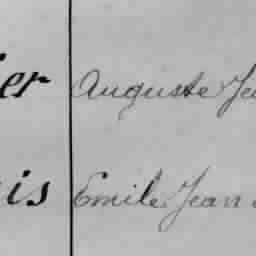 er Auguste Je
is Emile Jean